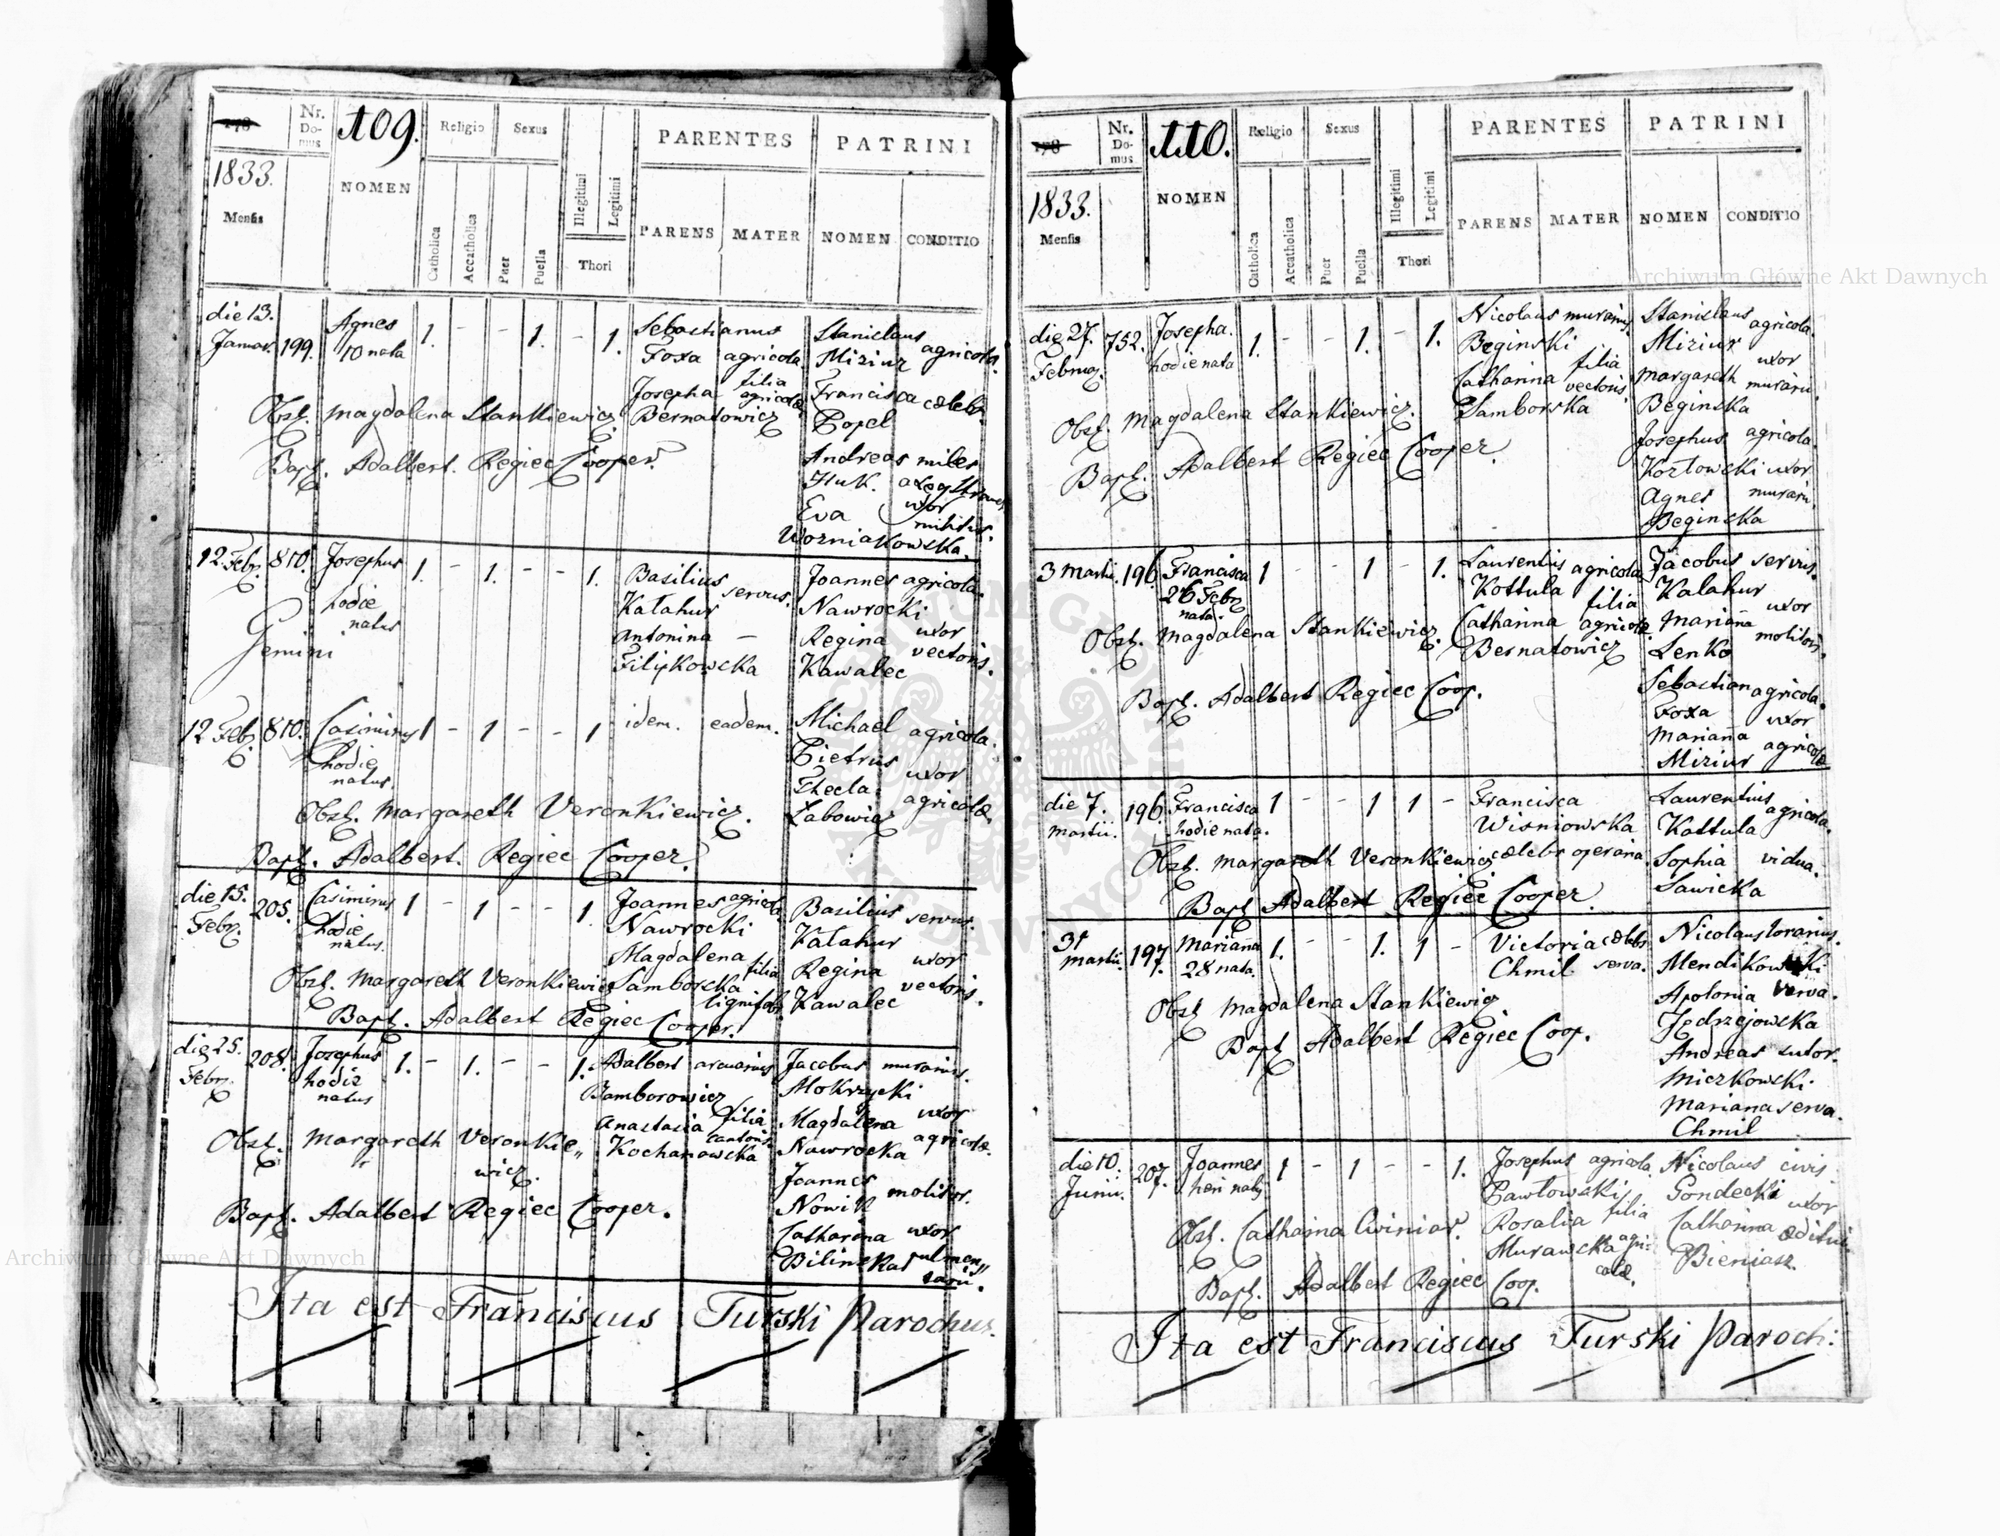 109.
Nr. Domus
Religio
Sexus
PARENTES
PATRINI
1833.
Mensis
NOMEN
Catholica
Accatholica
Puer
Puella
Illegitimi
Legitimi
Thori
PARENS
MATER
NOMEN
CONDITIO
die 13. Januar. 199. Agnes 10 nata 1. - - 1. - 1.
Sebastianus Foxa agricola
Josepha filia agricolæ Bernatowicz
Stanislaus Miziur agricola.
Francisca cælebs Popel
Andreas miles Huk.
Eva uxor militis. Wozniakowska.
Obst. Magdalena Stankiewicz.
Bapt. Adalbert. Regiec Cooper.
12 Febr. 810. Josephus hodie natus 1. - 1. - - 1.
Gemini
Basilius Kałahur servus.
Antonina - Filipkowska
Joannes agricola. Nawrocki
Regina uxor vectoris. Kawalec
12 Febr. 810. Casimirus hodie natus. 1 - 1 - - 1
idem. eadem.
Michael agricola. Pietrus
Thecla uxor agricolæ Zabowicz
Obst. Margareth Veronkiewicz.
Bapt. Adalbert. Regiec Cooper.
die 15. Febr. 205. Casimirus hodie natus. 1 - 1 - - 1.
Joannes agricola Nawrocki
Magdalena filia Samborska
Basilius servus. Kałahur
Regina uxor vectoris. Kawalec
Obst. Margareth Veronkiewicz
Bapt. Adalbert Regiec Cooper.
die 25. Febr. 208. Josephus hodie natus 1. - 1. - - 1.
Adalbert arcularius Bamborowicz
Anastasia filia cantoris Kochanowska
Jacobus murarius. Mokrzycki
Magdalena uxor agricolæ. Nawrocka
Joannes molitor. Nowik
Catharina uxor Bilinska
Obst. Margareth Veronkie„
wicz.
Bapt. Adalbert Regiec Cooper.
Ita est Franciscus Turski Parochus.
110.
Nr. Domus
Religio
Sexus
PARENTES
PATRINI
1833.
Mensis
NOMEN
Catholica
Accatholica
Puer
Puella
Illegitimi
Legitimi
Thori
PARENS
MATER
NOMEN
CONDITIO
die 27. Februar. 752. Josepha. hodie nata 1. - - 1. - 1.
Nicolaus murarius. Beginski
Catharina filia vectoris. Samborska
Stanislaus agricola. Miziur
Margareth uxor murarii. Beginska
Josephus agricola. Kozłowski
Agnes uxor murarii. Beginska
Obst. Magdalena Stankiewicz.
Bapt. Adalbert Regiec Cooper.
3 Martii. 196. Francisca 26 Febr. nata. 1 - - 1 - 1.
Laurentius agricola Kottula
Catharina filia agricolæ Bernatowicz
Jacobus servus. Kałahur
Marianna uxor molitoris. Lenko
Sebastian agricola. Foxa
Marianna uxor agricolæ Miziur
Obst. Magdalena Stankiewicz.
Bapt. Adalbert Regiec Coop.
die 7. Martii. 196 Francisca hodie nata. 1 - - 1 1 -
Francisca Wisniowska cælebs operaria.
Laurentius agricola. Kottula
Sophia vidua. Sawicka
Obst. Margareth Veronkiewicz
Bapt Adalbert Regiec Cooper.
31 Martii. 197. Marianna 28 nata. 1. - - 1. 1 -
Victoria cælebs Chmil serva.
Nicolaus lorarius. Mendikowski
Apolonia serva. Jędrzejowska
Andreas sutor. Miczkowski.
Mariana serva. Chmil
Obst Magdalena Stankiewicz
Bapt Adalbert Regiec Coop.
die 10. Junii. 207. Joannes heri natus 1 - 1 - - 1.
Josephus agricola. Pawłowski
Rosalia filia agricolæ. Murawska
Nicolaus civis Gondecki
Catharina uxor æditui Bieniasz.
Obst. Catharina Cwiniar.
Bapt. Adalbert Regiec Coop.
Ita est Franciscus Turski Paroch:
Archiwum Główne Akt Dawnych
Archiwum Główne Akt Dawnych
ARCHIWUM GŁÓWNE AKT DAWNYCH